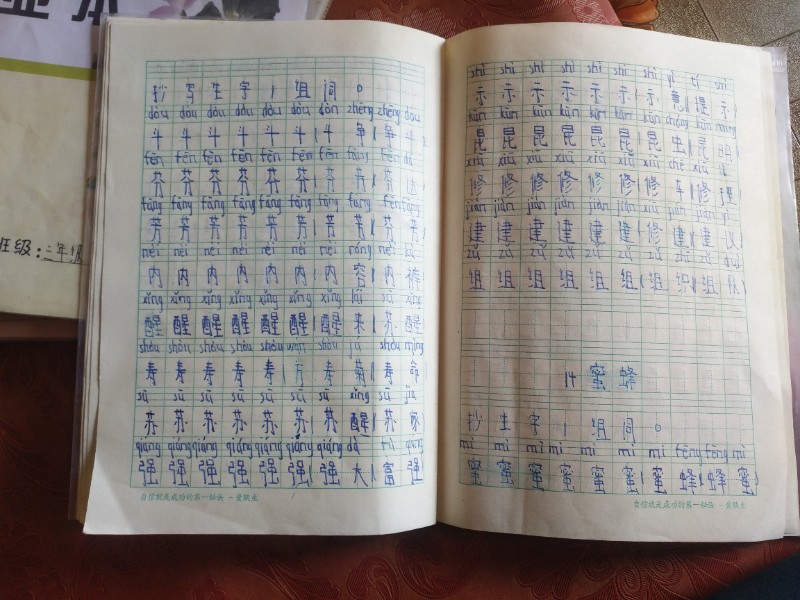 班级:三年级
抄写生字,组词。
dòu dòu dòu dòu dòu dòn zhēng zhēng dòu
斗 斗 斗 斗 斗(斗 争)(争 斗)
fēn fēn fēn fēn fēn fēn fāng fēn dá
芬 芬 芬 芬 芬(芬 芳)(芬 达)
fāng fāng fāng fāng fāng fāng fēn fāng
芳 芳 芳 芳 芳(芬 芳)
nèi nèi nèi nèi nèi nèi róng nèi kù
内 内 内 内 内(内 容)(内 裤)
xǐng xǐng xǐng xǐng xǐng xǐng lái sū xǐng
醒 醒 醒 醒 醒(醒 来)(苏 醒)
shòu shòu shòu shòu shòu jú shòu mìng
寿 寿 寿 寿 寿(万 寿 菊)(寿 命)
sū sū sū sū sū sū xǐng sū jiā
苏 苏 苏 苏 苏(苏 醒)(苏 家)
qiáng qiáng qiáng qiáng qiáng qiáng dà fù qiáng
强 强 强 强 强(强 大)(富 强)
自信就是成功的第一秘诀 - 爱默生
shì shì shì shì shì shì yì tí shì
示 示 示 示 示(示 意)(提 示)
kūn kūn kūn kūn kūn kūn chóng kūn míng
昆 昆 昆 昆 昆(昆 虫)(昆 明)
xiū xiū xiū xiū xiū xiū chē xiū lǐ
修 修 修 修 修(修 车)(修 理)
jiàn jiàn jiàn jiàn jiàn xiū jiàn jiàn yì
建 建 建 建 建(修 建)(建 议)
zǔ zǔ zǔ zǔ zǔ zǔ zhī zǔ duì
组 组 组 组 组(组 织)(组 队)
14 蜜 蜂
抄 生 字,组 词。
mì mì mì mì mì mì fēng fēng mì
蜜 蜜 蜜 蜜 蜜(蜜 蜂)(蜂 蜜)
自信就是成功的第一秘诀 - 爱默生